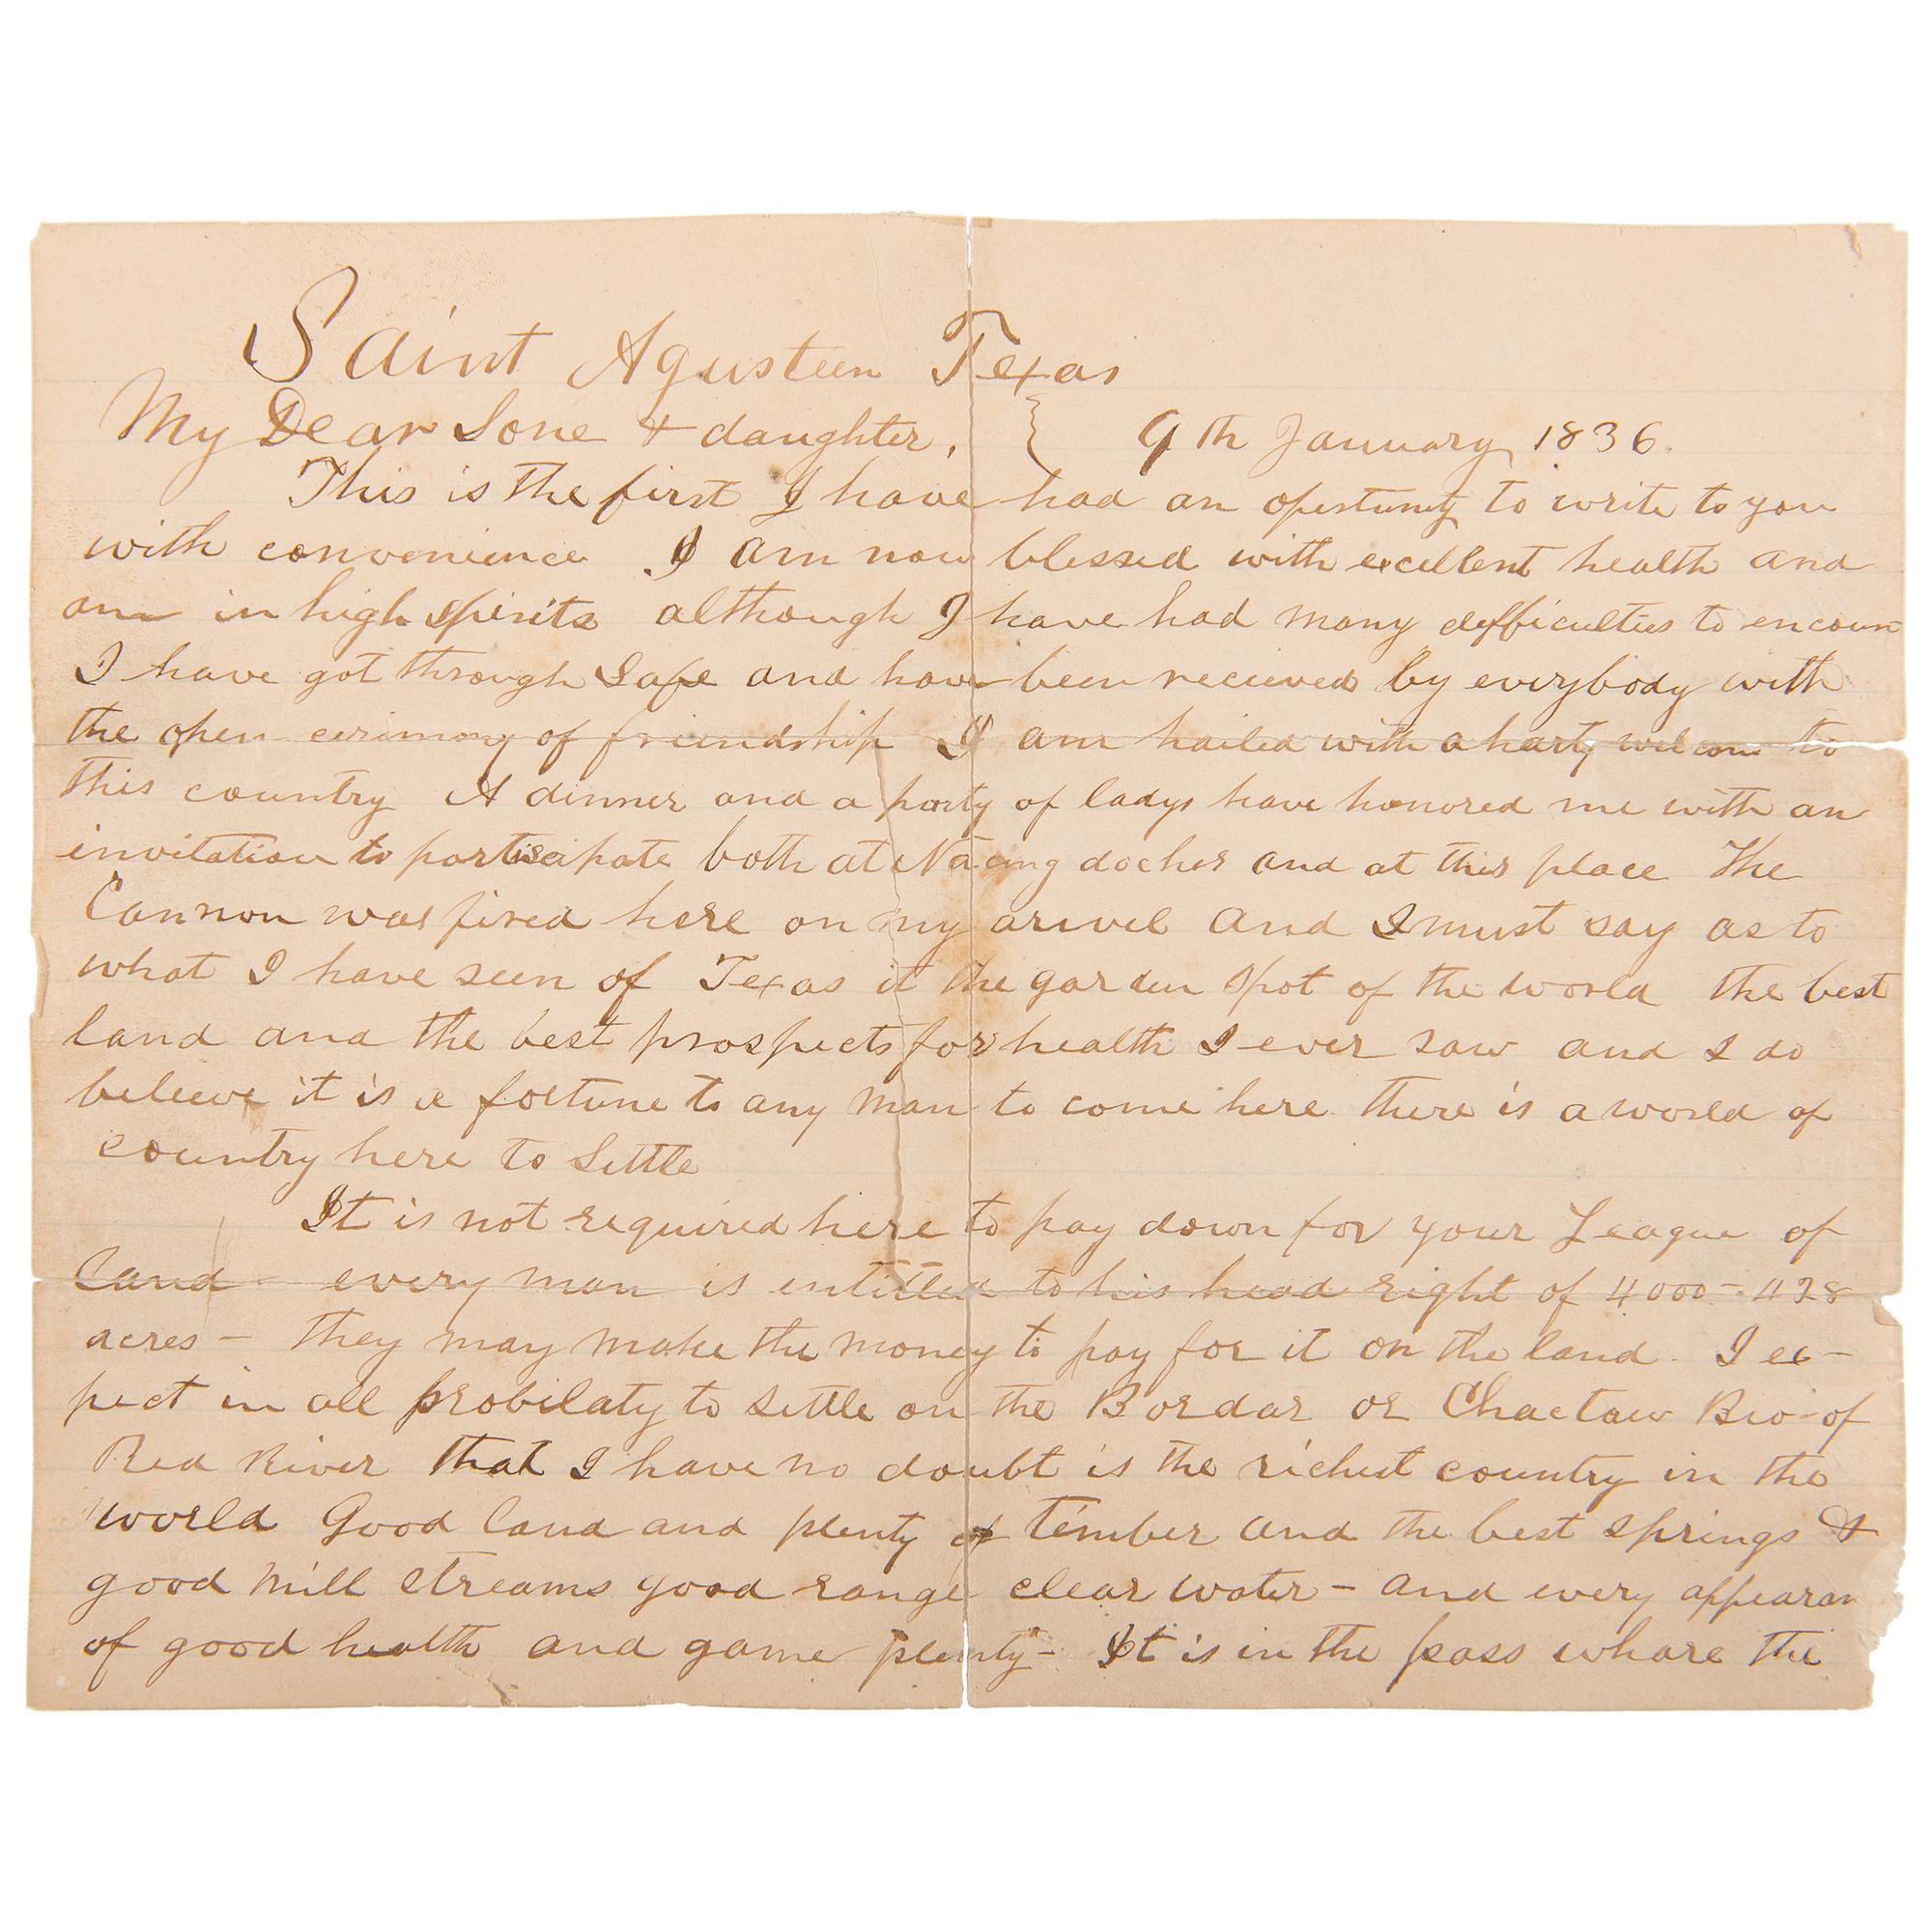 Saint Agusteen Texas
My Dear Sone & daughter, } 9th January 1836.
This is the first I have had an opertunity to write to you
with convenience I am now blessed with excellent health and
am in high spirits although I have had many defficulties to encoun
I have got through safe and have been recieved by everybody with
the open cerimony of friendship I am hailed with a harty welcom to
this country A dinner and a party of ladys have honored me with an
invitation to partisapate both at Nacing doches and at this place The
Cannon was fired here on my arivel and I must say as to
what I have seen of Texas it the garden spot of the world the best
land and the best prospects for health I ever saw and I do
beleeve it is a fortune to any man to come here there is a world of
country here to settle
It is not required here to pay down for your League of
land - every man is entitled to his head right of 4000-428
acres - they may make the money to pay for it on the land. I ex-
pect in all probilaty to settle on the Bordar or Chactaw Bio-of
Red River that I have no doubt is the richest country in the
world Good land and plenty of timber and the best springs &
good mill streams good range clear water - and every appearan
of good health and game plenty - It is in the pass whare the